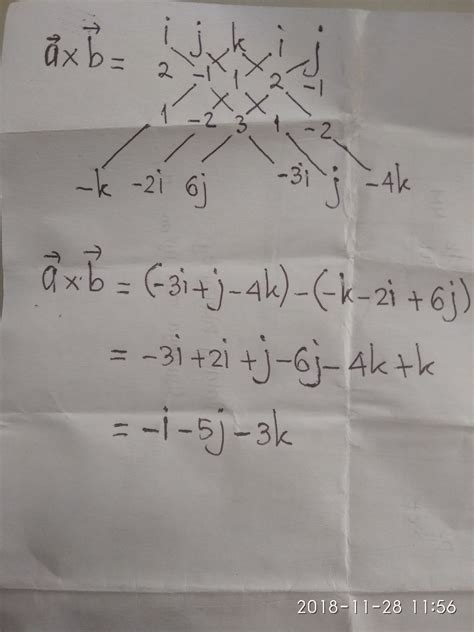 i j k i j
a⃗ × b⃗ = 2 -1 1 2 -1
1 -2 3 1 -2
-k -2i 6j -3i j -4k
a⃗ × b⃗ = (-3i+j-4k)-(-k-2i+6j)
= -3i+2i+j-6j-4k+k
= -i-5j-3k
2018-11-28 11:56